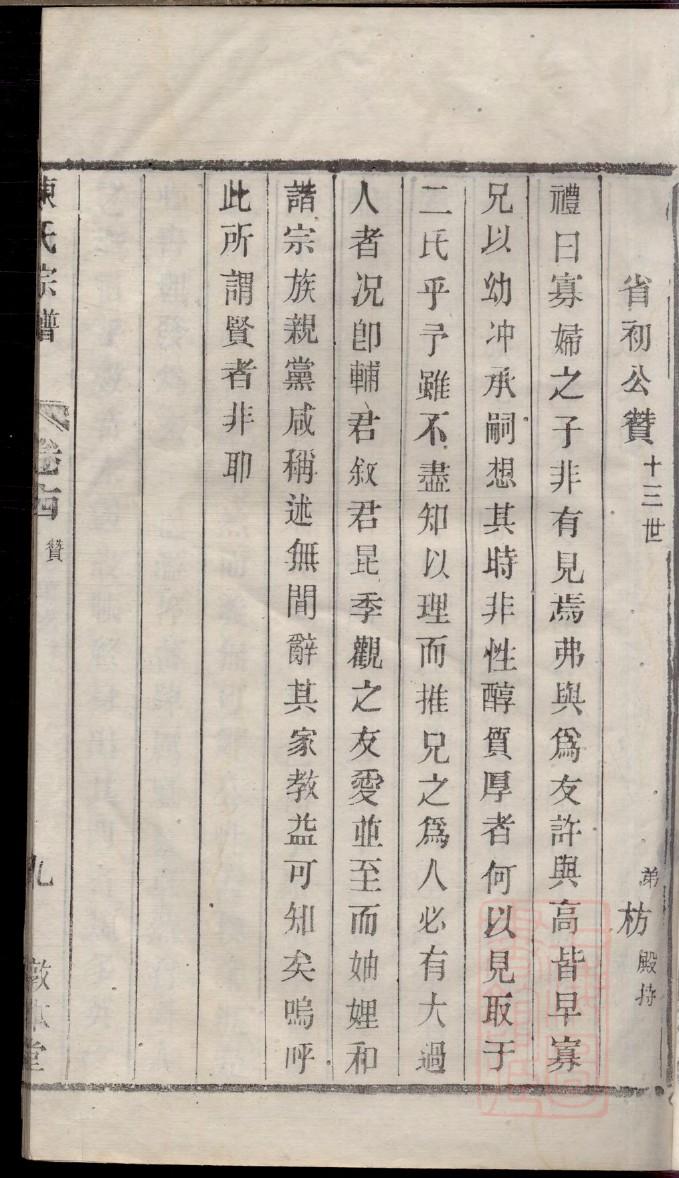 省初公贊 十三世 弟 枋 殿持
禮曰寡婦之子非有見焉弗與爲友許與高皆早寡
兄以幼冲承嗣想其時非性醇質厚者何以見取于
二氏乎予雖不盡知以理而推兄之爲人必有大過
人者况卽輔君敘君昆季觀之友愛並至而妯娌和
諧宗族親黨咸稱述無間辭其家教益可知矣嗚呼
此所謂賢者非耶
陳氏宗譜 贊 九 敦本堂